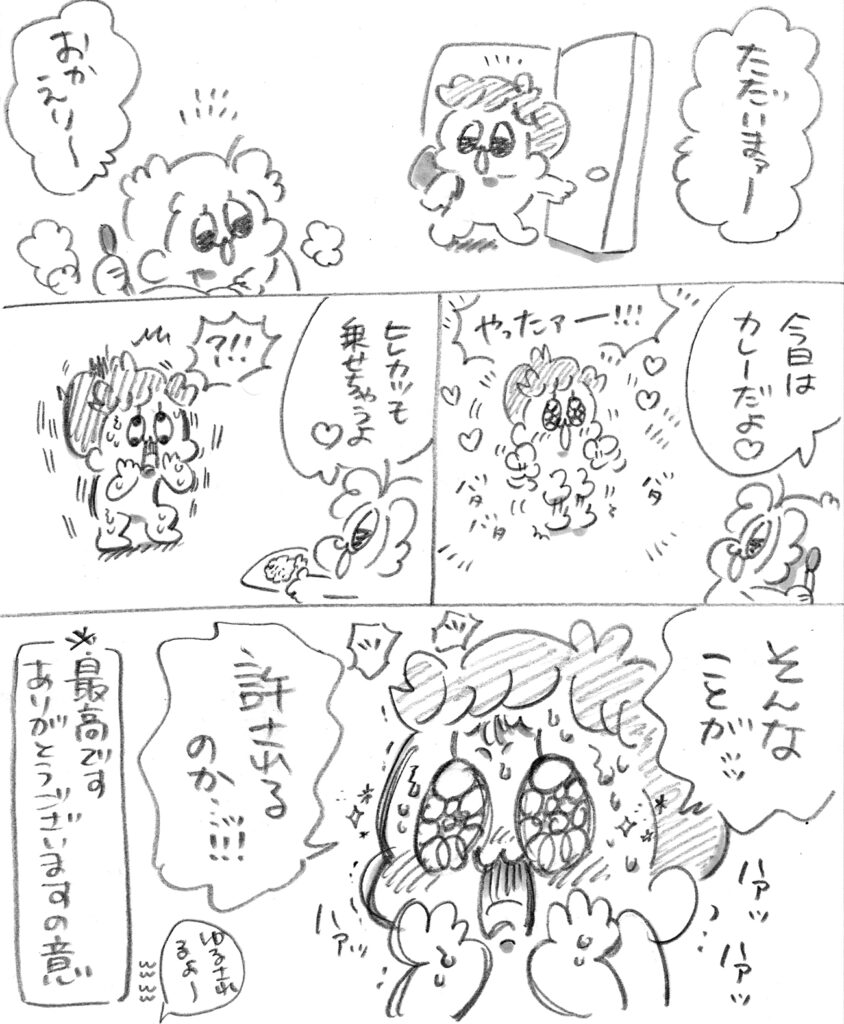 ただいまァー
おかえりー
今日は
カレーだよ♡
やったァー!!!
バタ
バタ
バタ
ヒレカツも
乗せちゃうよ
♡
?!!
そんな
ことがッ
許されるー
のか…!!!
ハァッ
ハァッ
ハァッ
ゆるされ
るよ〜
*最高です
ありがとうございますの意